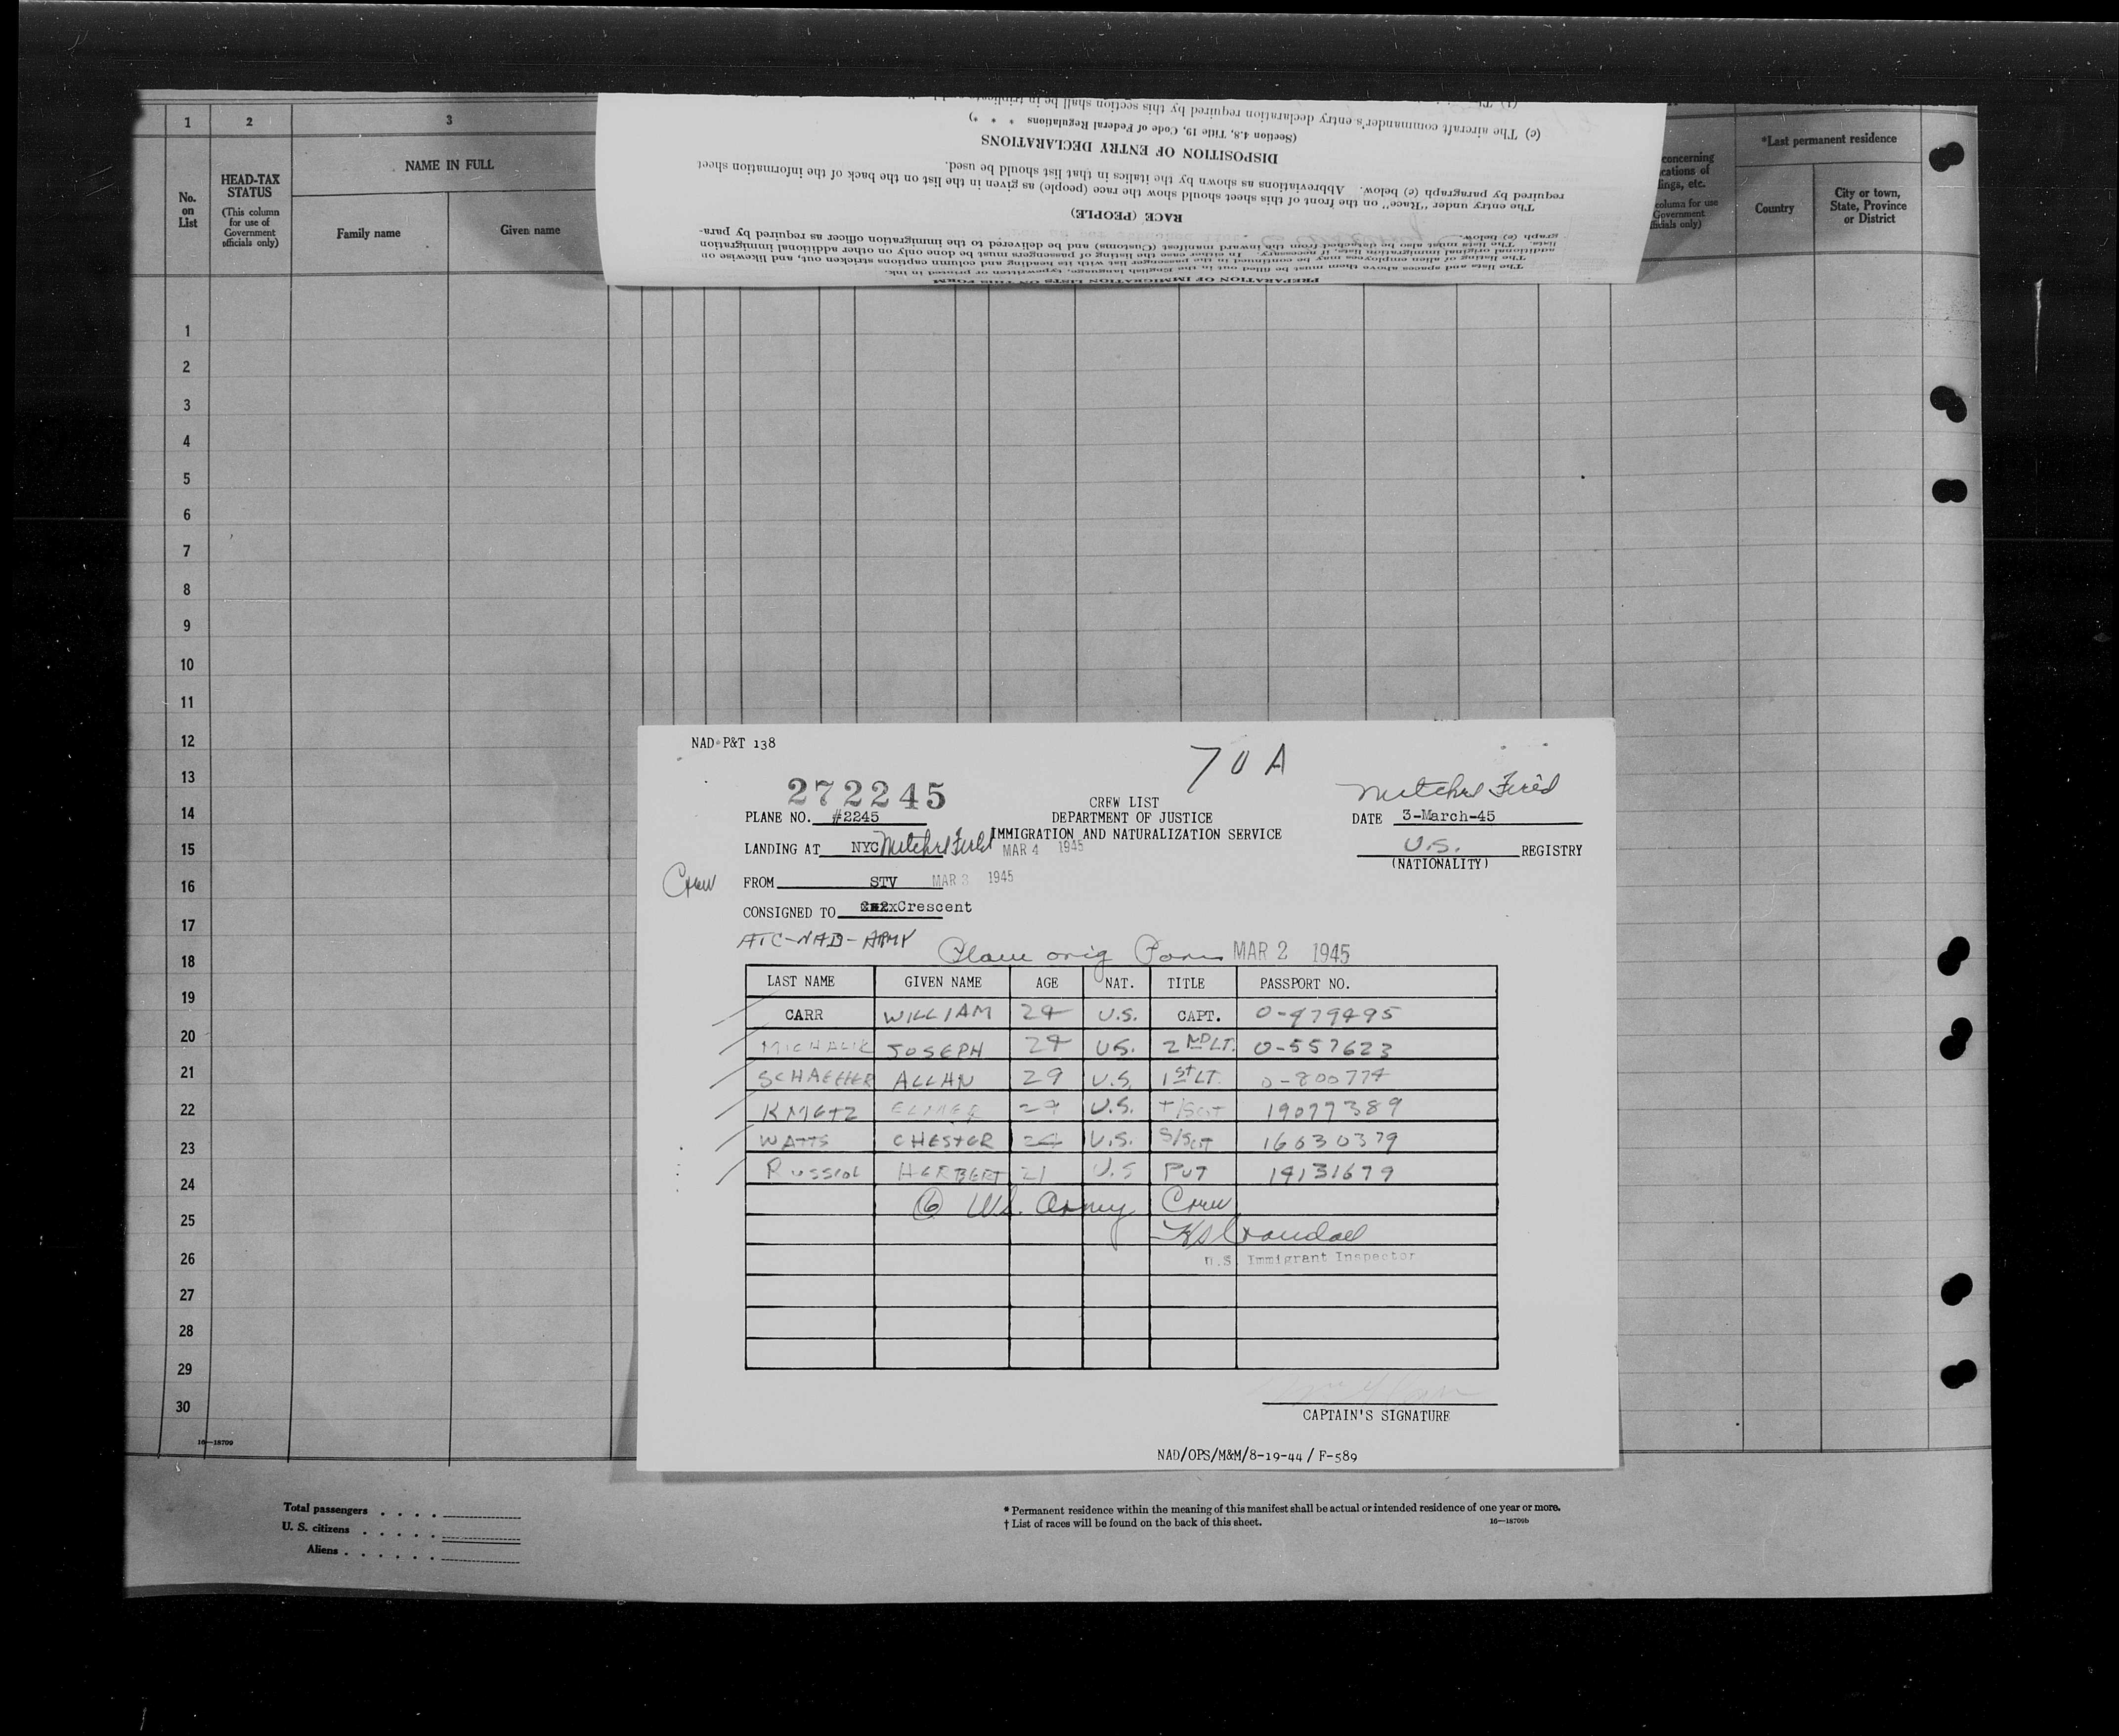 1
2
3
No.
on
List
HEAD-TAX
STATUS
(This column
for use of
Government
officials only)
NAME IN FULL
Family name
Given name
(c) The aircraft commander's entry declaration required by this section shall be in triplicate
(Section 4.8, Title 19, Code of Federal Regulations * * *)
DISPOSITION OF ENTRY DECLARATIONS
required by paragraph (e) below. Abbreviations as shown by the italics in that list should be used.
The entry under "Race" on the front of this sheet should show the race (people) as given in the list on the back of the information sheet
RACE (PEOPLE)
graph (e) below.
lists. The lists must also be detached from the inward manifest (Customs) and be delivered to the immigration officer as required by para-
additional original immigration lists, if necessary. In either case the listing of passengers must be done only on other additional immigration
The listing of alien employees may be continued in the passenger list with its heading and column captions stricken out, and likewise on
The lists and spaces above them must be filled out in the English language, typewritten or printed in ink.
PREPARATION OF IMMIGRATION LISTS ON THIS FORM
concerning
cations of
lings, etc.
column for use
Government
officials only)
*Last permanent residence
Country
City or town,
State, Province
or District
1
2
3
4
5
6
7
8
9
10
11
12
13
14
15
16
17
18
19
20
21
22
23
24
25
26
27
28
29
30
16—18709
NAD-P&T 138
70A
272245
Mitchel Field
CREW LIST
PLANE NO. #2245
DEPARTMENT OF JUSTICE
DATE 3-March-45
IMMIGRATION AND NATURALIZATION SERVICE
LANDING AT NYC Mitchel Field MAR 4 1945
U.S. REGISTRY
(NATIONALITY)
Crew FROM STV MAR 3 1945
CONSIGNED TO Crescent
ATC-NAD-ARMY
Plane orig MAR 2 1945
LAST NAME GIVEN NAME AGE NAT. TITLE PASSPORT NO.
CARR WILLIAM 24 U.S. CAPT. O-479495
MICHALIK JOSEPH 24 U.S. 2ND LT. O-557623
SCHAEFFER ALLAN 29 U.S. 1ST LT. O-800774
KMETZ ELMER U.S. T/SGT 19077389
WATTS CHESTER 24 U.S. S/SGT 16630379
HERBERT 21 U.S PVT 14131679
6 U.S. Army Crew
Crandall
U.S. Immigrant Inspector
CAPTAIN'S SIGNATURE
NAD/OPS/M&M/8-19-44/F-589
Total passengers
U. S. citizens
Aliens
* Permanent residence within the meaning of this manifest shall be actual or intended residence of one year or more.
† List of races will be found on the back of this sheet.
16—18709b